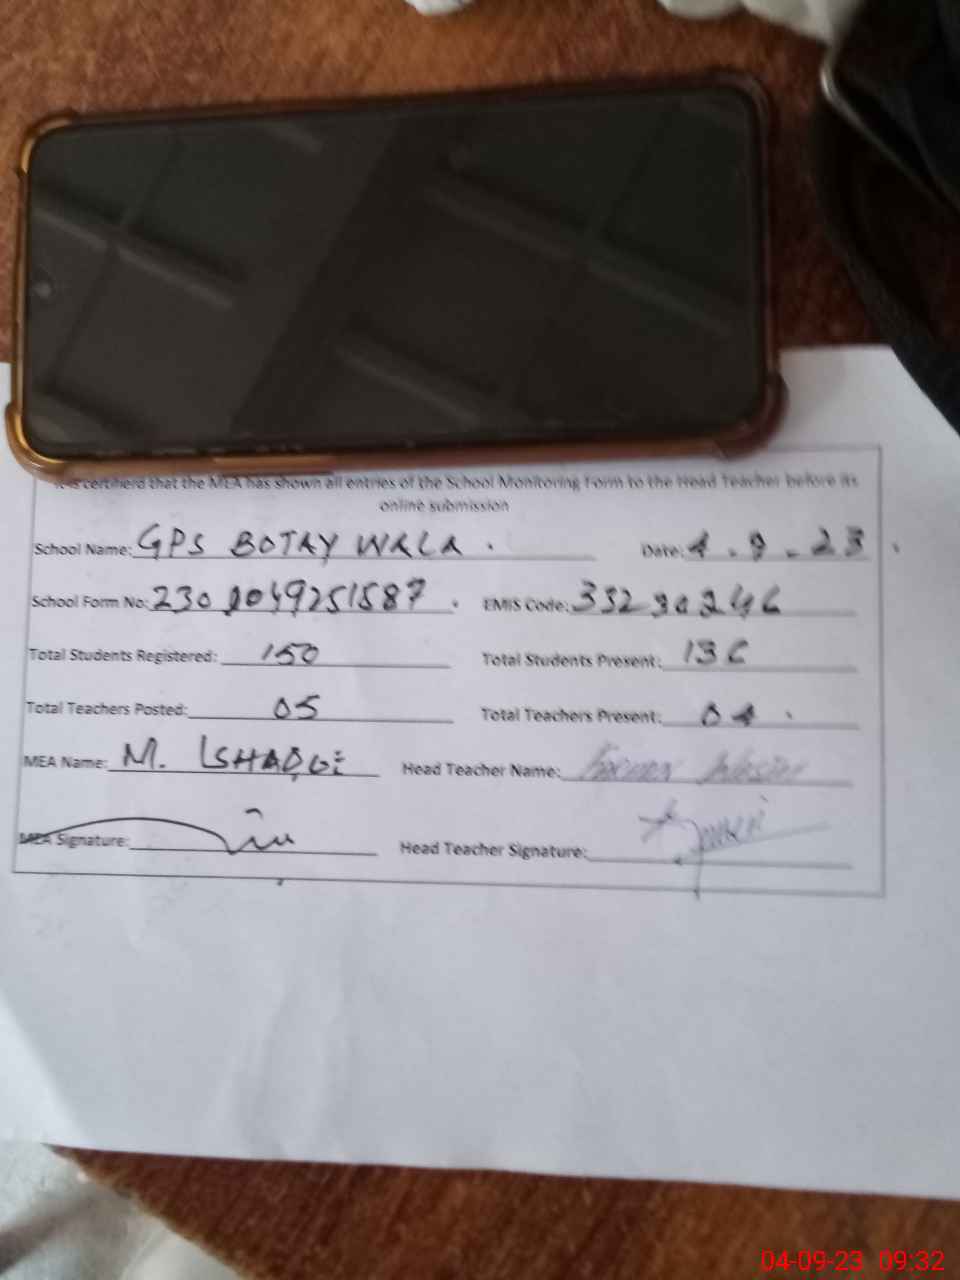 It is certifierd that the MEA has shown all entries of the School Monitoring Form to the Head Teacher before its
online submission
School Name: GPS BOTAY WALA . Date: 4 . 9 . 23
School Form No: 2309049251587 . EMIS Code:
Total Students Registered: 150 Total Students Present: 136
Total Teachers Posted: 05 Total Teachers Present: 04 .
MEA Name: M. Head Teacher Name:
MEA Signature: Head Teacher Signature:
04-09-23 09:32